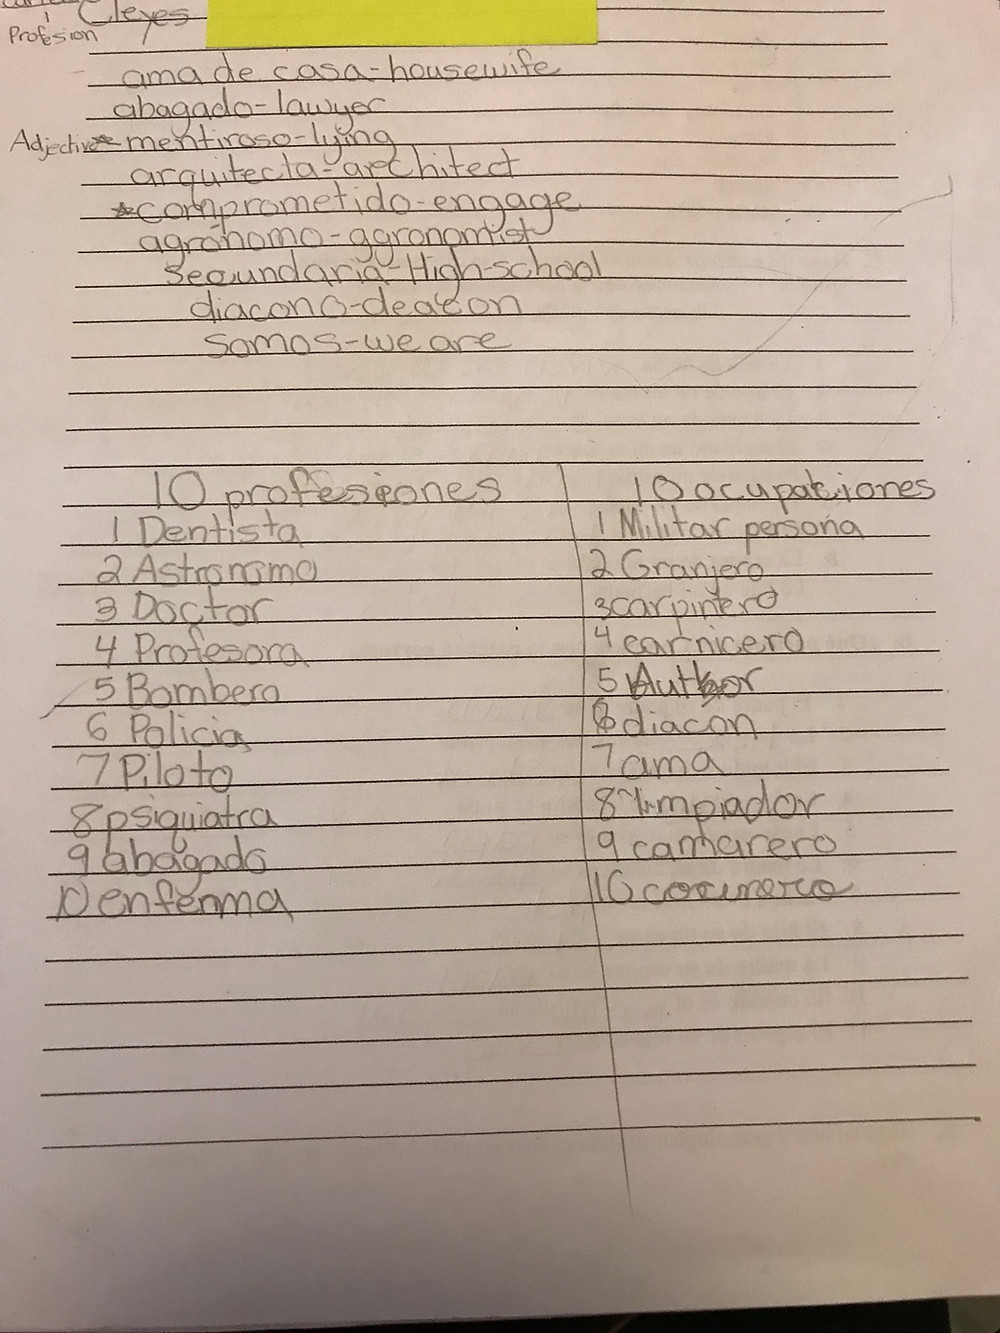 Cleyes
Profesion
ama de casa-housewife
abagado-lawyer
Adjective mentiroso-lying
arquitecta-architect
*comprometido-engage
agrónomo-agronomist
Secundaria-High-school
diacono-deacon
Somos-we are
10 profesiones
10 ocupationes
1 Dentista
1 Militar persona
2 Astronomo
2 Granjero
3 Doctor
3 carpintero
4 Profesora
4 carnicero
5 Bombero
5 Author
6 Policia
6 diacon
7 Piloto
7 ama
8 psiquiatra
8 limpiador
9 abagado
9 camarero
10 enferma
10 cocinero